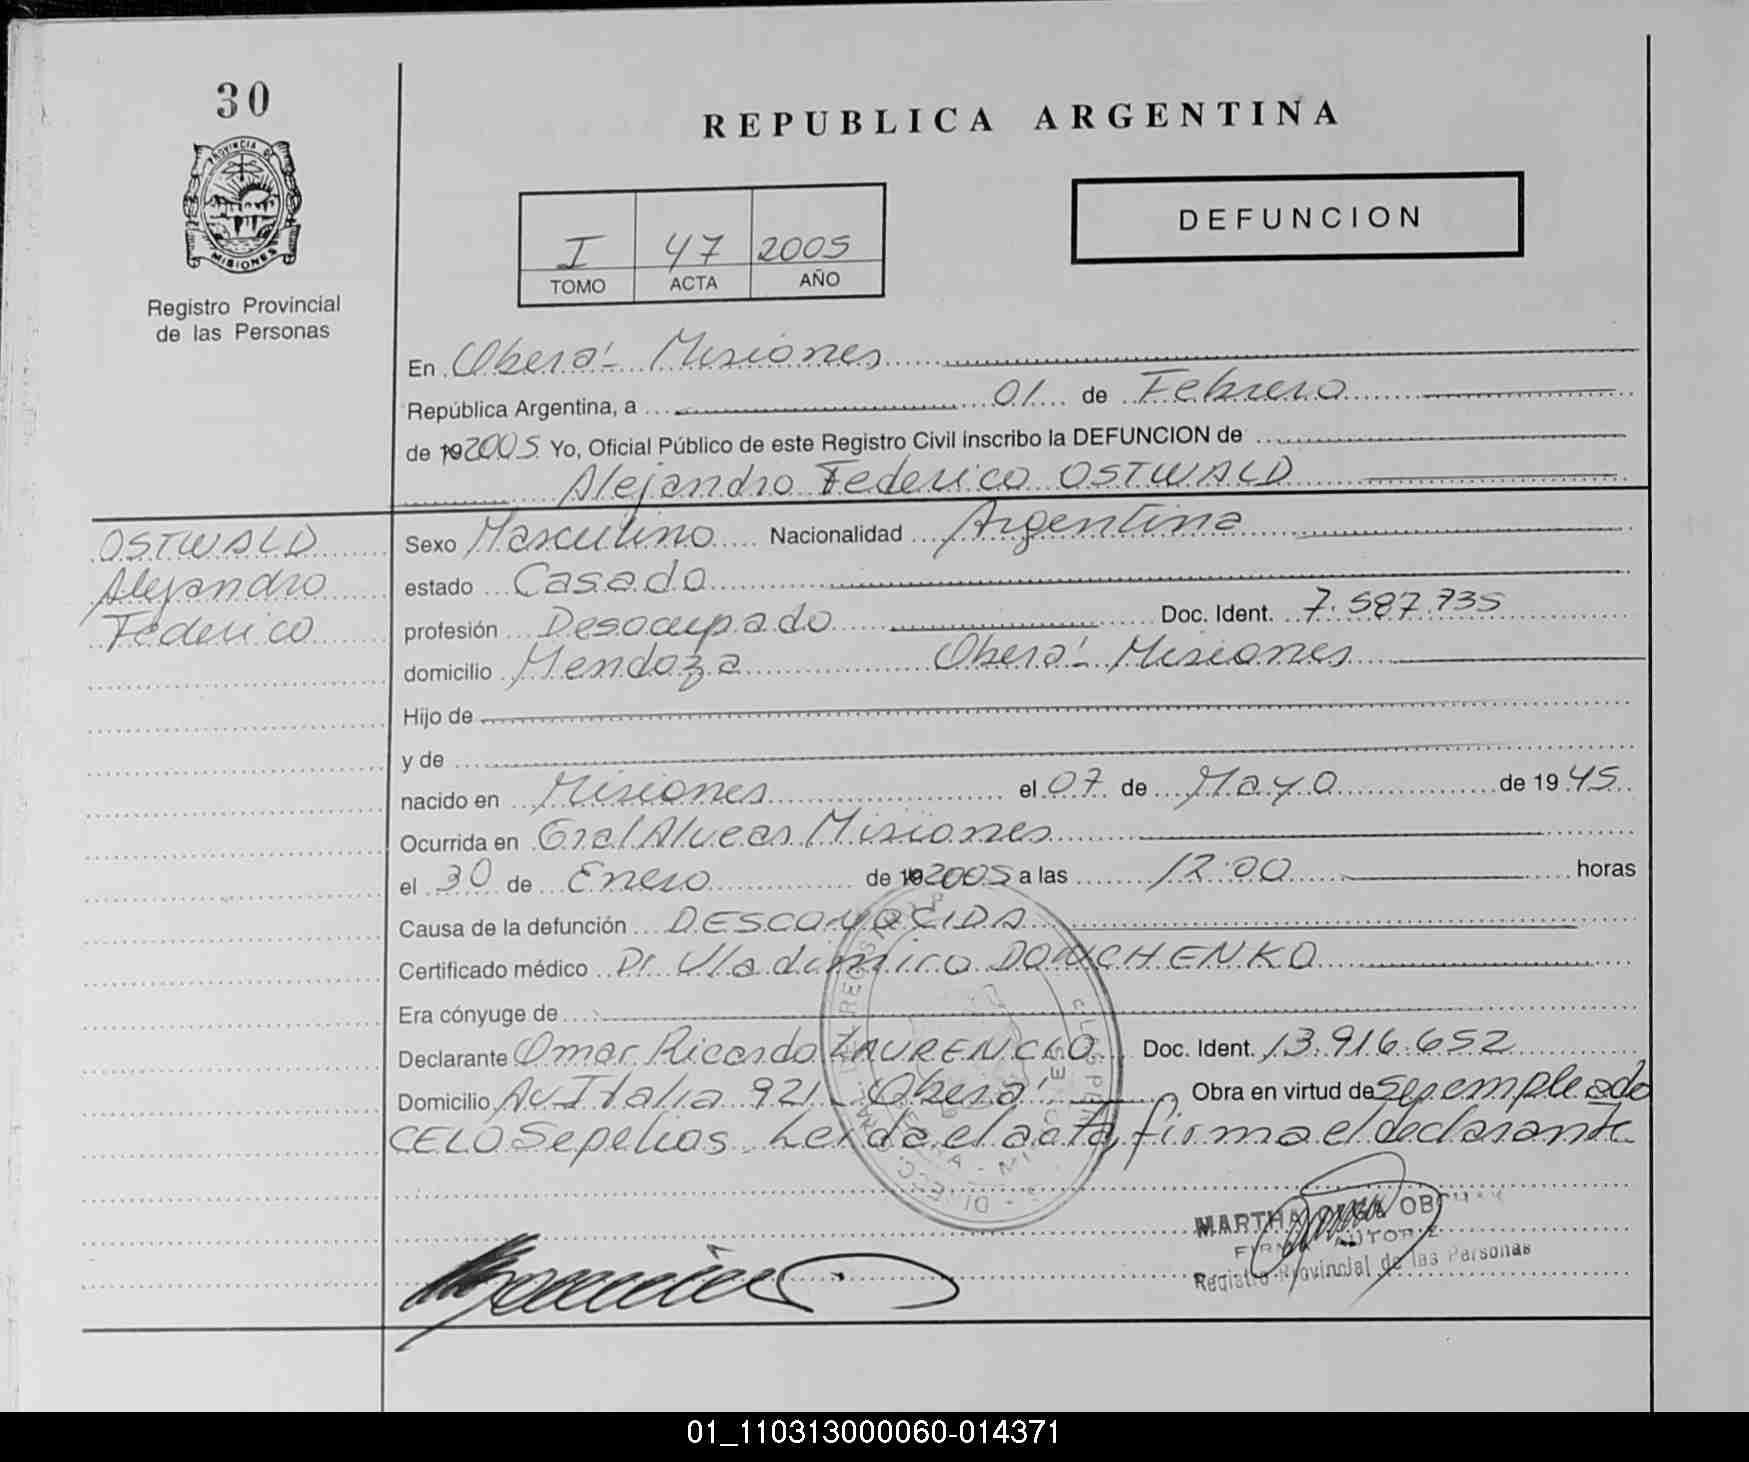 30
PROVINCIA DE
MISIONES
Registro Provincial
de las Personas
REPUBLICA ARGENTINA
DEFUNCION
I 47 2005
TOMO ACTA AÑO
En Oberá - Misiones
República Argentina, a 01 de Febrero
de 192005 Yo, Oficial Público de este Registro Civil inscribo la DEFUNCION de
Alejandro Federico OSTWALD
OSTWALD
Alejandro
Federico
Sexo Masculino Nacionalidad Argentina
estado Casado
profesión Desocupado Doc. Ident. 7.587.735
domicilio Mendoza Oberá - Misiones
Hijo de
y de
nacido en Misiones el 07 de Mayo de 1945
Ocurrida en Gral Alvear Misiones
el 30 de Enero de 192005 a las 12:00 horas
Causa de la defunción DESCONOCIDA
Certificado médico Dr. Vladimiro DONCHENKO
Era cónyuge de
Declarante Omar Ricardo LAURENCIO Doc. Ident. 13.916.652
Domicilio Av Italia 921 - Oberá Obra en virtud de Ser empleado
CELO Sepelios. Leída el acta, firma el declarante
MARTHA
Registro Provincial de las Personas
01_110313000060-014371